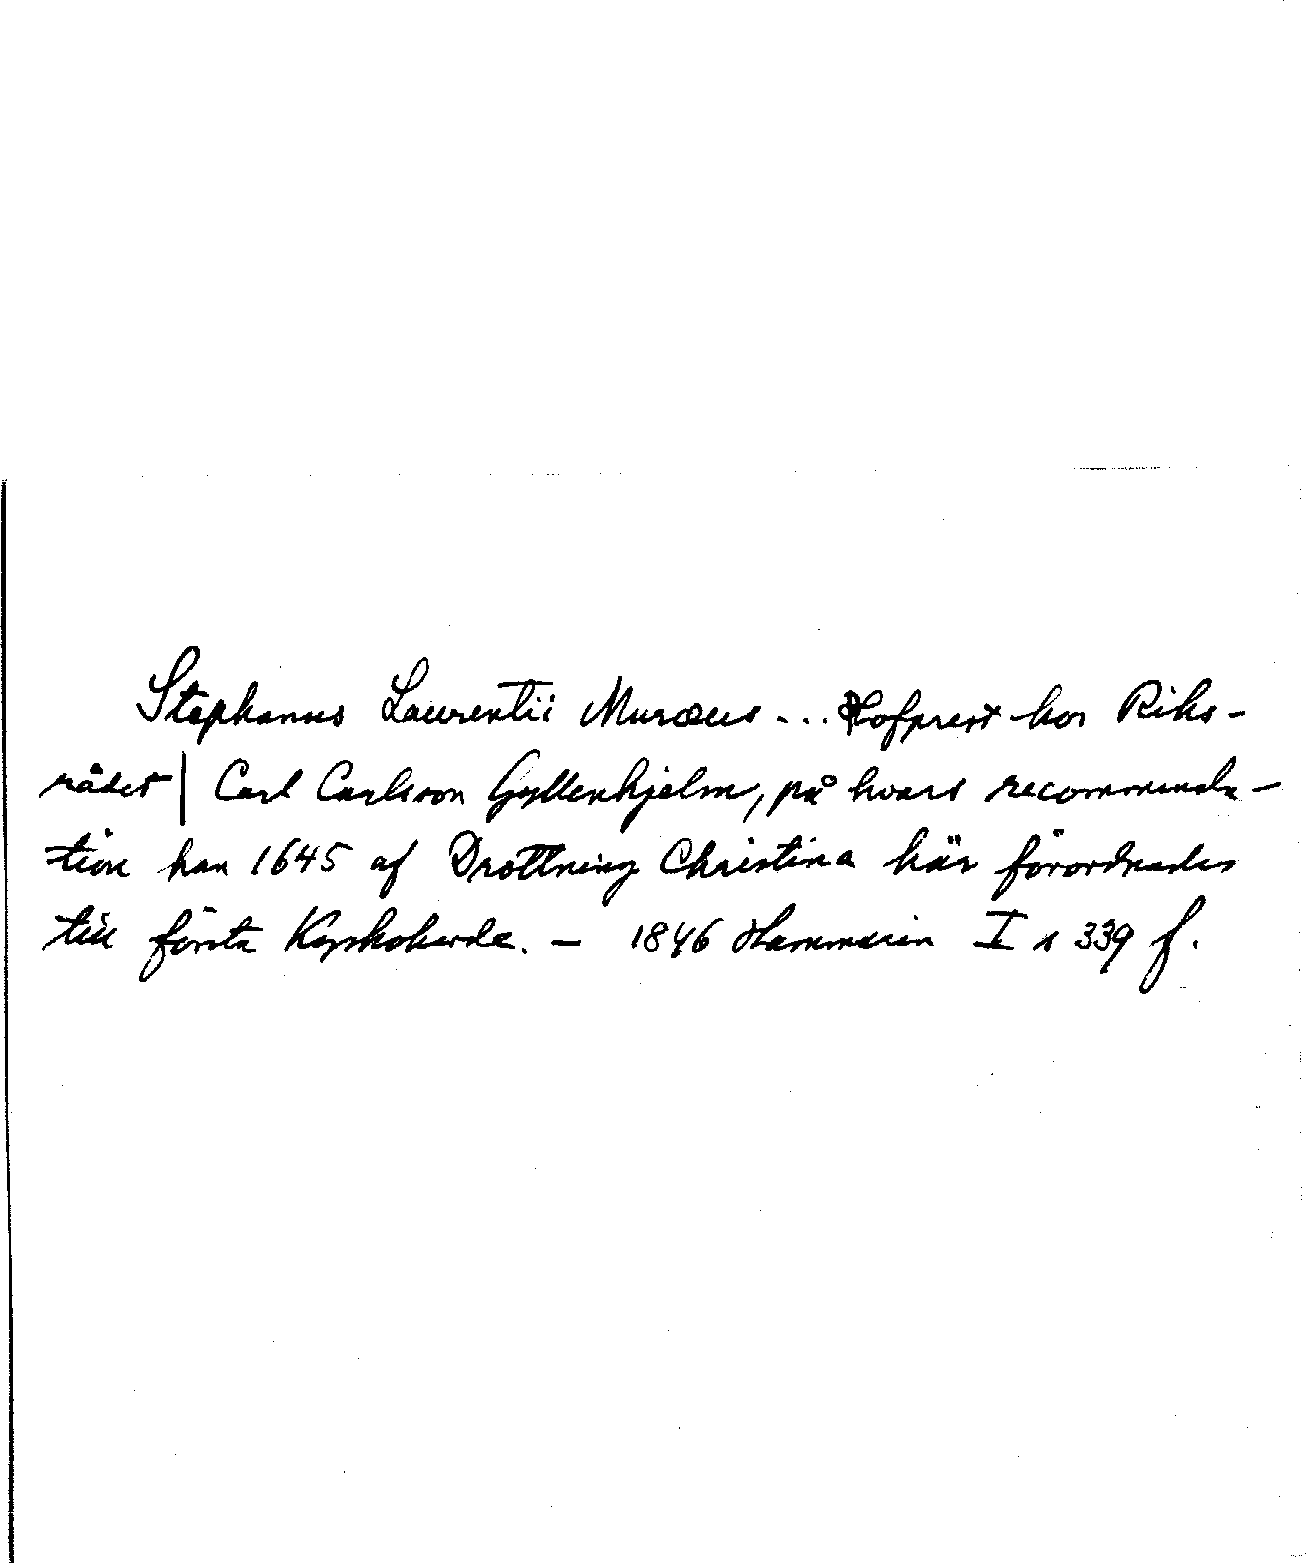 Stephanus Laurentii Muræus ... Hofprest hos Riks-
rådet | Carl Carlsson Gyllenhjelm, på hvars recommenda-
tion han 1645 af Drottning Christina här förordnades
till första Kyrkoherde. – 1846 Hammarin I s 339 f.